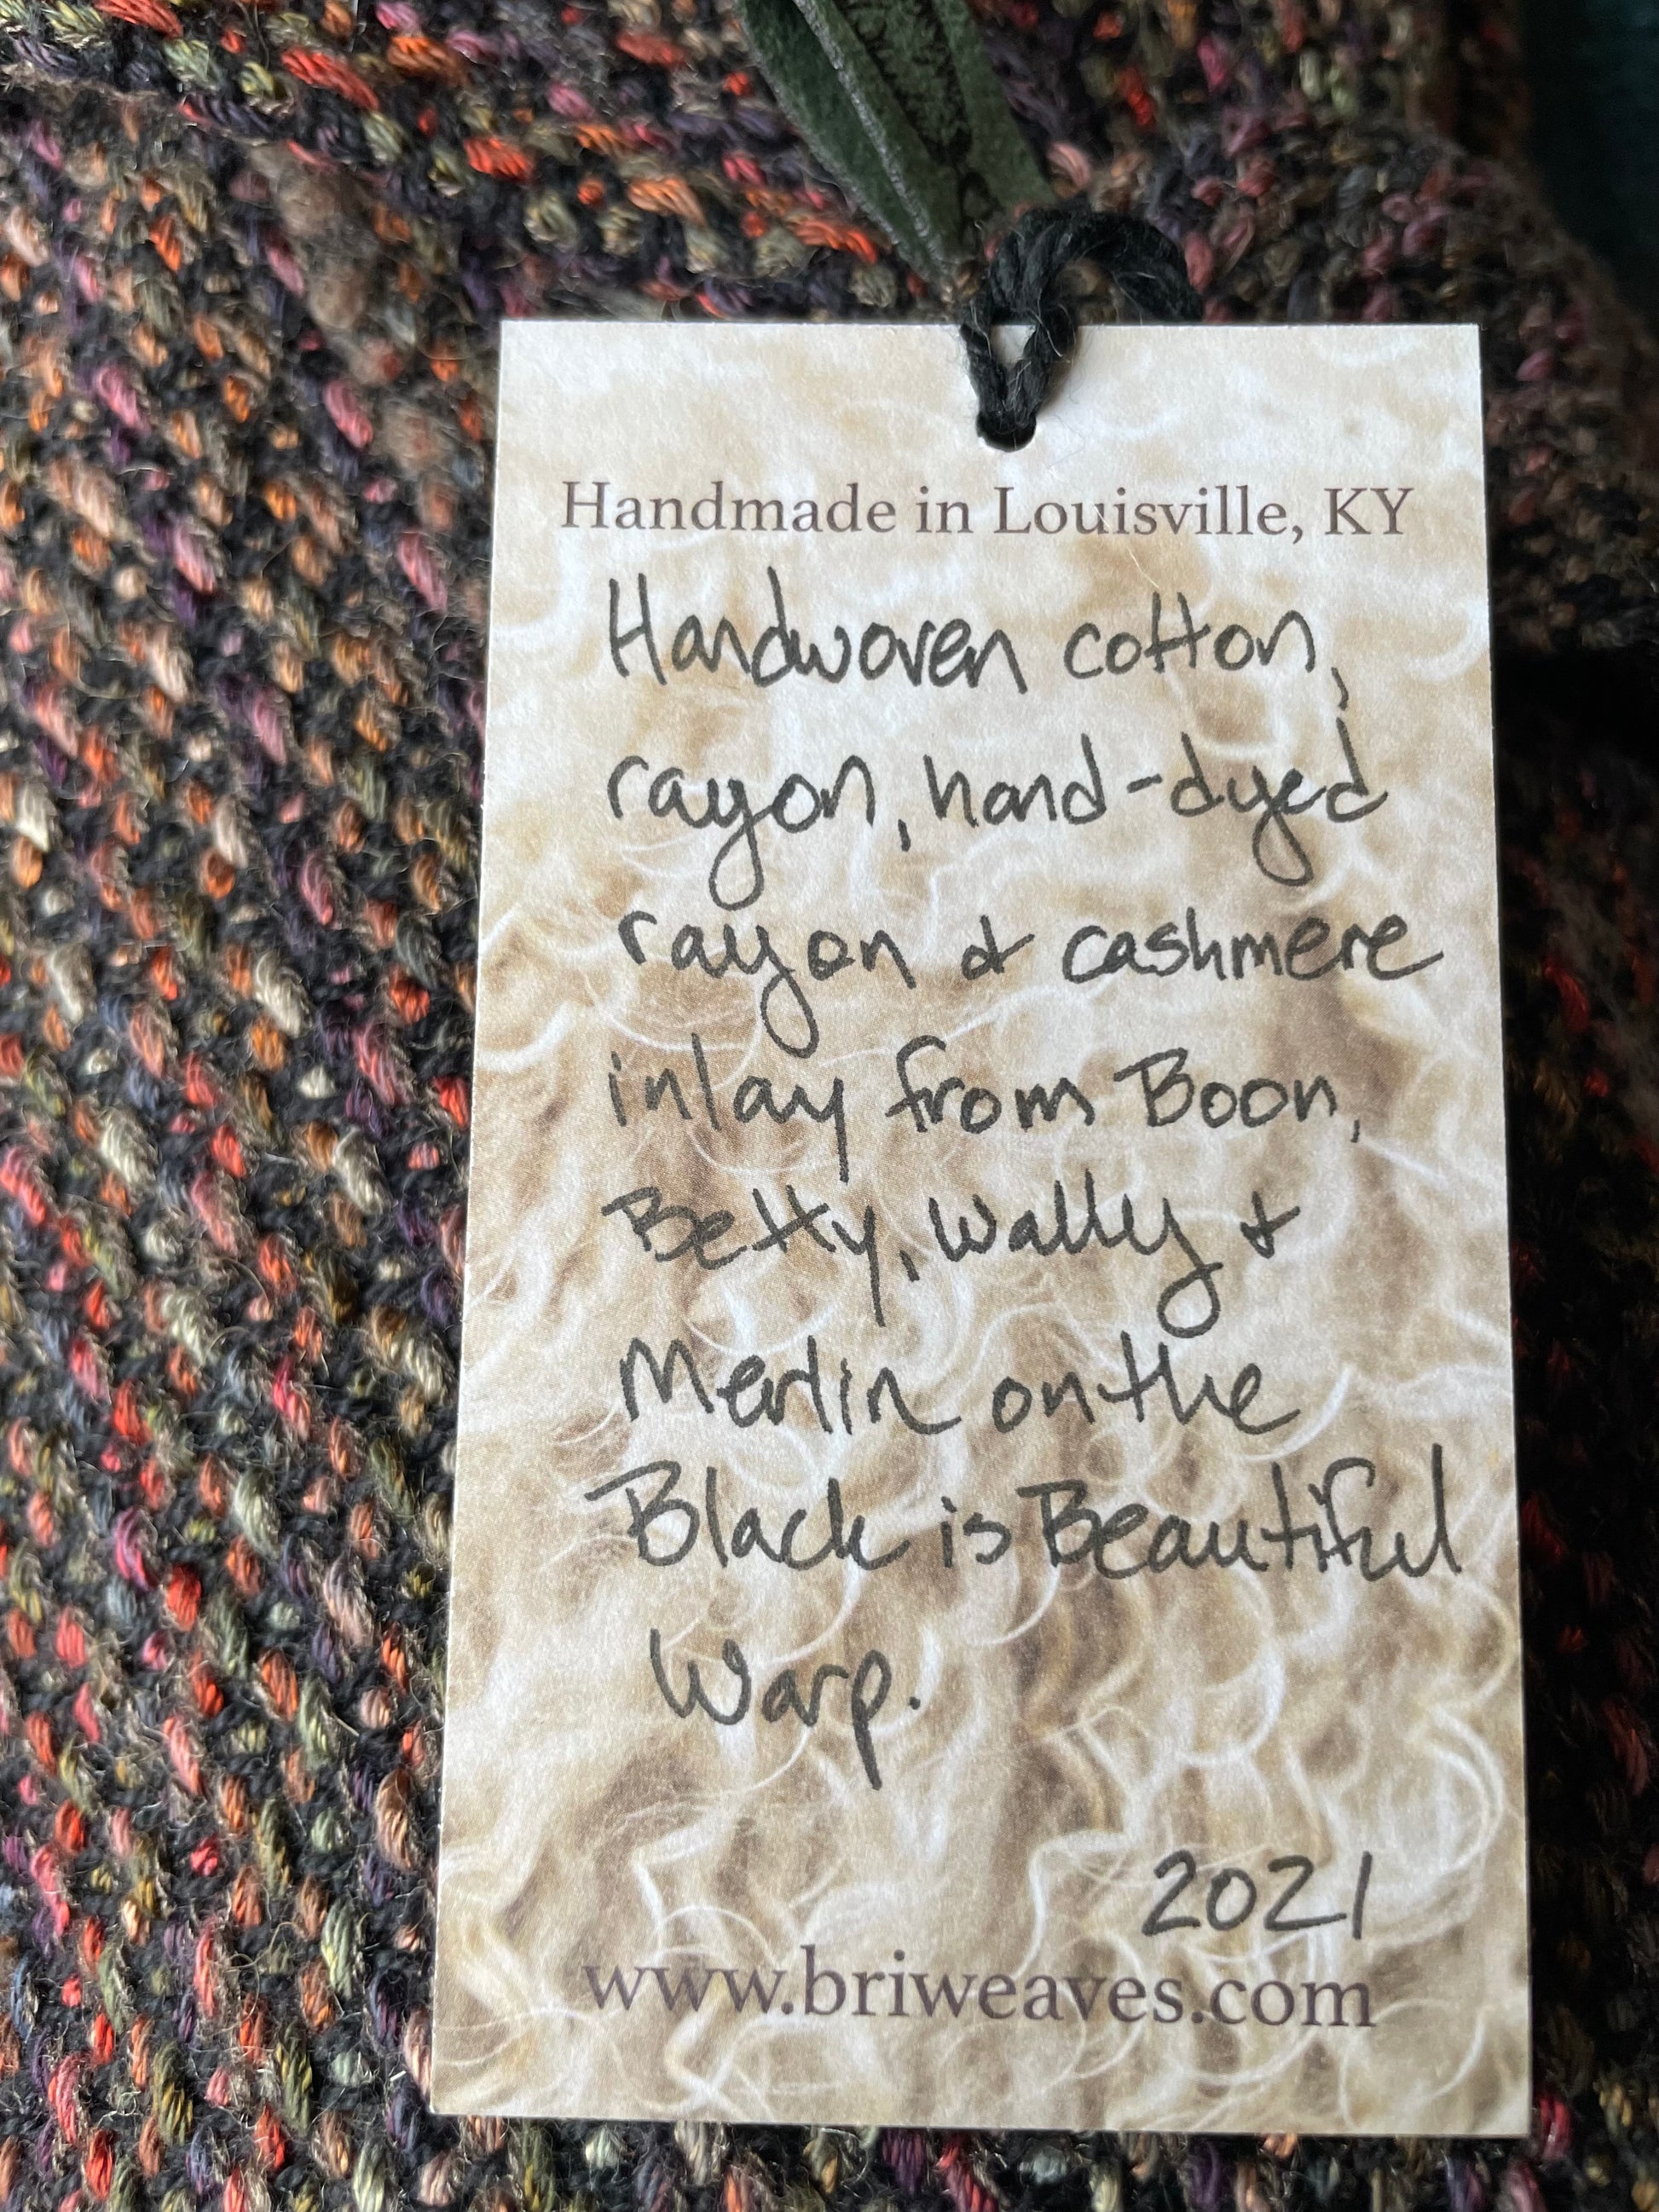 Handmade in Louisville, KY
Handwoven cotton,
rayon, hand-dyed
rayon & cashmere
inlay from Boon,
Betty, Wally &
Merlin on the
Black is Beautiful
Warp.
2021
www.briweaves.com